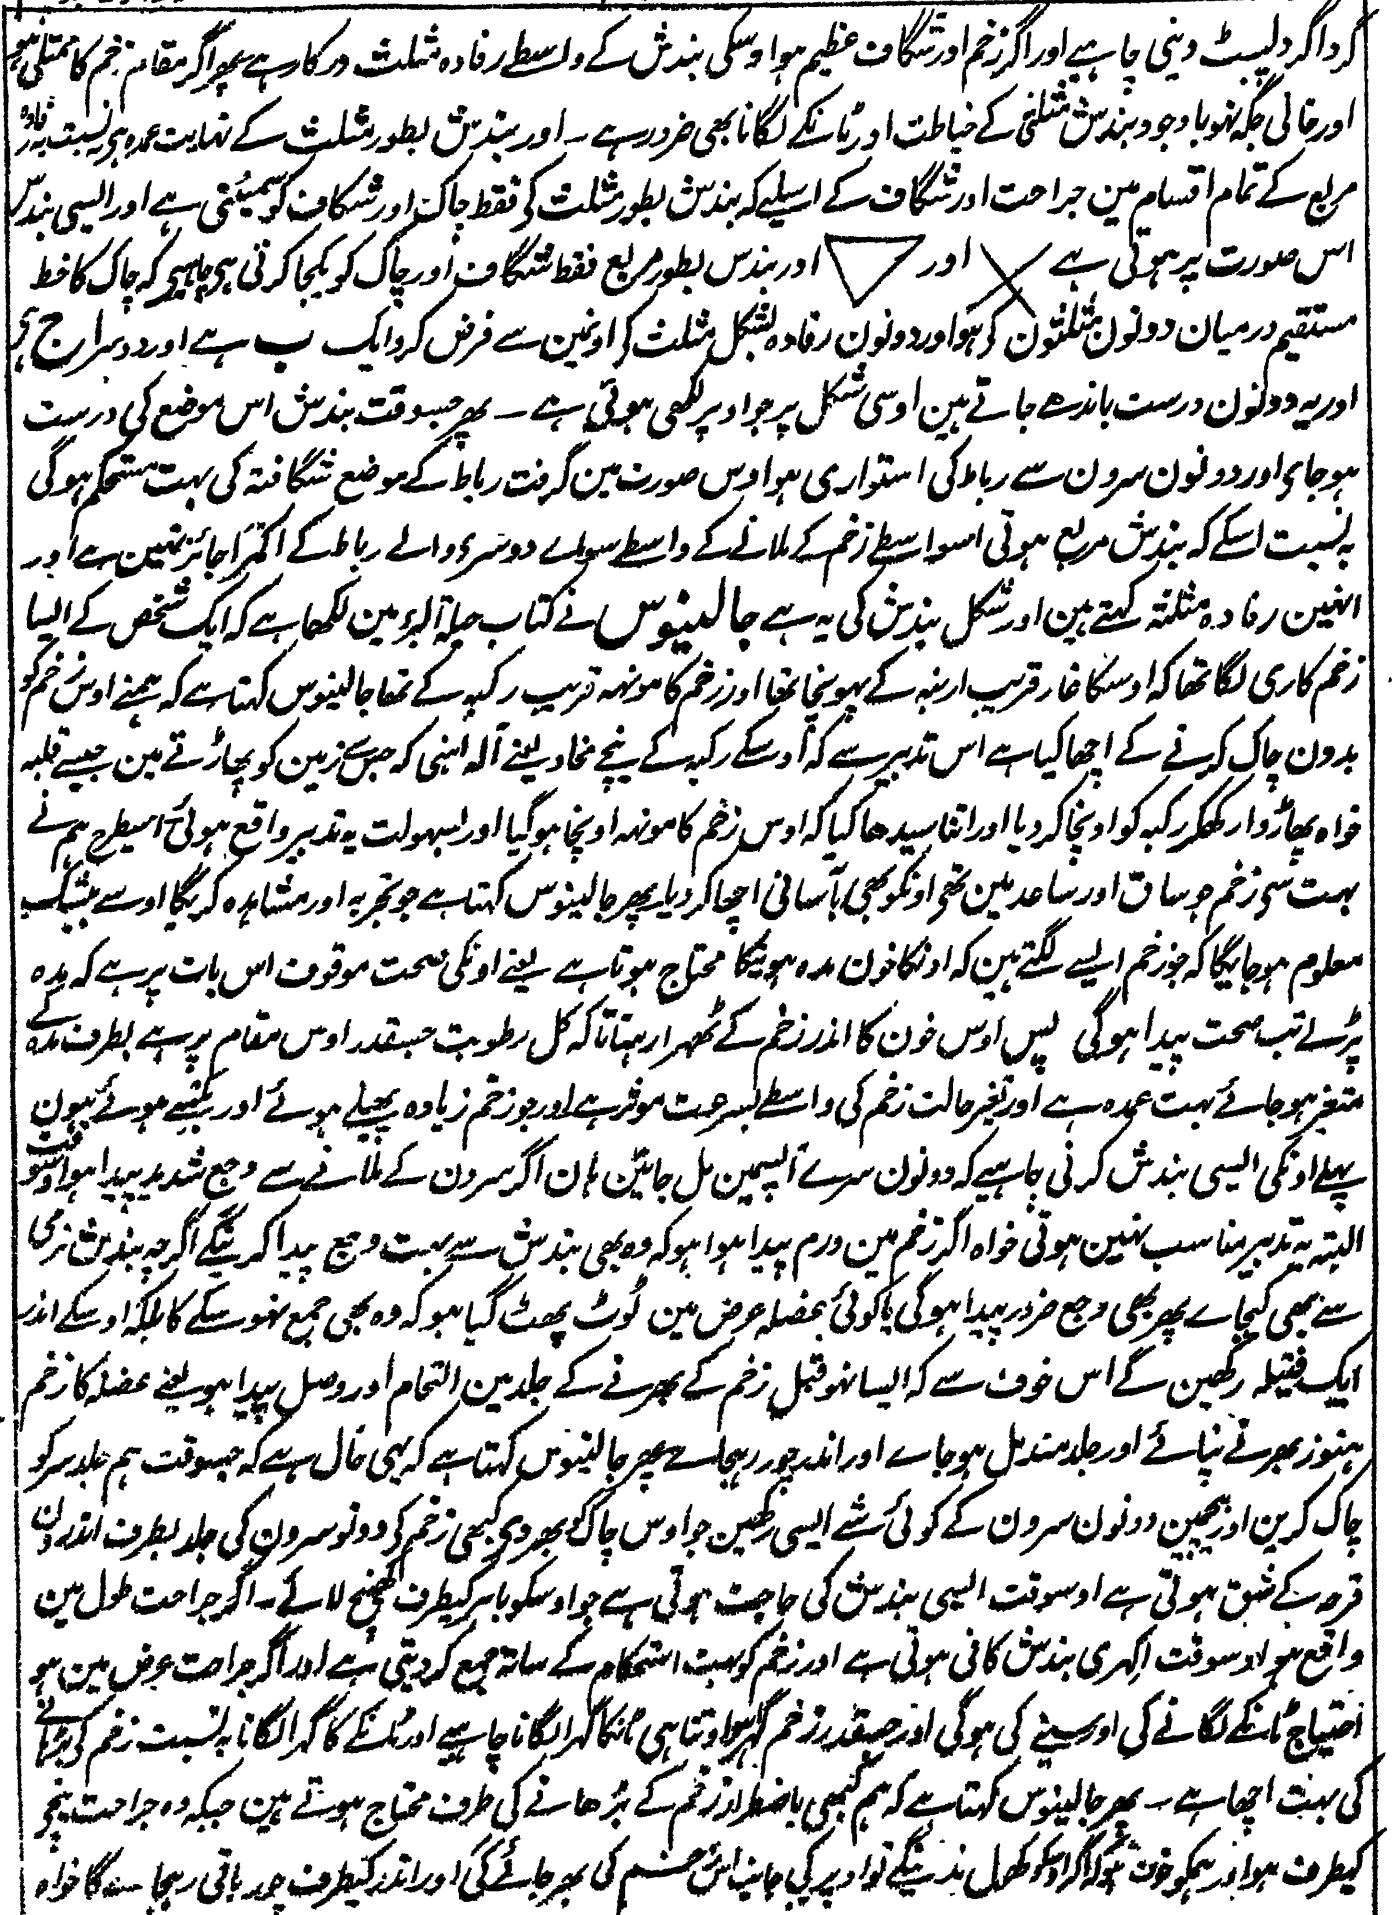 گرداگرد لپیٹ دینی چاہیے اور اگر زخم اور شگاف عظیم ہو اوسکی بندش کے واسطے رفادہ مثلث درکار ہے پھر اگر مقام زخم کا ممتلی ہو
اور خالی جگہ نہو باوجود بندش مثلثی کے خیاطت اور ٹانکے لگانا بھی ضرور ہے ۔ اور بندش بطور مثلث کے نہایت عمدہ ہی بہ نسبت رفادہ
مربع کے تمام اقسام مین جراحت اور شگاف کے اسلیے کہ بندش بطور مثلث کی فقط چاک اور شگاف کو سمیٹتی ہے اور ایسی بندش
اس صورت پر ہوتی ہے اور اور بندش بطور مربع فقط شگاف اور چاک کو یکجا کرتی ہی چاہیے کہ چاک کا خط
مستقیم درمیان دونون مثلثون کی ہو اور دونون رفادہ بشکل مثلث کی اونمین سے فرض کرو ایک ب ہے اور دوسرا ج ہی
اور یہ دونون درست باندھے جاتے ہین اوسی شکل پر جو اوپر لکھی ہوئی ہے ۔ پھر جسوقت بندش اس موضع کی درست
ہو جای اور دونون سرون سے رباط کی استواری ہو اوس صورت مین گرفت رباط کے موضع شگافتہ کی بہت مستحکم ہوگی
بہ نسبت اسکے کہ بندش مربع ہوتی اسواسطے زخم کے ملانے کے واسطے سواے دوسرے والے رباط کے اکثر اجائز نہین ہے اور
انھین رفادہ مثلثہ کہتے ہین اور شکل بندش کی یہ ہے جالینوس نے کتاب حیلۃ البرء مین لکھا ہے کہ ایک شخص کے ایسا
زخم کاری لگا تھا کہ اوسکا غار قریب اربنہ کے پہونچا تھا اور زخم کا مونہہ قریب رکبہ کے تھا جالینوس کہتا ہے کہ ہمنے اوس زخم کو
بدون چاک کرنے کے اچھا کیا ہے اس تدبیر سے کہ اوسکے رکبہ کے نیچے مخاد یعنے آلہ اہنی کہ جس سے زمین کو پھاڑتے ہین جیسے قلبہ
خواہ پھاڑو ار رکھکر رکبہ کو اونچا کر دیا اور اتنا سیدھا کیا کہ اوس زخم کا مونہہ اونچا ہو گیا اور بسہولت یہ تدبیر واقع ہوئی اسیطرح ہم نے
بہت سی زخم جو ساق اور ساعد مین تھی اونکو بھی بآسانی اچھا کر دیا پھر جالینوس کہتا ہے جو تجربہ اور مشاہدہ کریگا اوسے بیشک
معلوم ہو جایگا کہ جو زخم ایسے لگتے ہین کہ اونکا خون مدہ ہونیکا محتاج ہوتا ہے یعنے اونکی صحت موقوف اس بات پر ہے کہ مدہ
پڑلے تب صحت پیدا ہوگی پس اوس خون کا اندر زخم کے ٹھہرا رہنا تاکہ کل رطوبت جسقدر اوس مقام پر ہے بطرف مدہ کے
متغیر ہو جائے بہت عمدہ ہے اور تغیر حالت زخم کی واسطے بسرعت موثر ہے اور جو زخم زیادہ پھیلے ہوئے اور ہوئے ہون
پہلے اونکی ایسی بندش کرنی چاہیے کہ دونون سرے آپسمین مل جائین ہان اگر سرون کے ملانے سے وجع شدید پیدا ہو اوسوقت
البتہ یہ تدبیر مناسب نہین ہوتی خواہ اگر زخم مین ورم پیدا ہوا ہو کہ وہ بھی بندش سے بہت وجع پیدا کرینگے اگرچہ بندش نرمی
سے بھی کیجاے پھر بھی وجع ضرور پیدا ہوگی یا کوئی عضلہ عرض مین ٹوٹ پھٹ گیا ہو کہ وہ بھی جمع نہو سکے گا بلکہ اوسکے اندر
ایک فتیلہ رکھین گے اس خوف سے کہ ایسا نہو قبل زخم کے بھرنے کے جلد مین التحام اور وصل پیدا ہو یعنے عضلہ کا زخم
ہنوز بھرنے نپائے اور جلد مندمل ہو جاے اور اندر چور رہجاے پھر جالینوس کہتا ہے کہ یہی حال ہے کہ جسوقت ہم جلد سر کو
چاک کرین اور بیچمین دونون سرون کے کوئی شے ایسی رکھین جو اوس چاک کو بھر دی کبھی زخم کی دونو سرون کی جلد بطرف اندرون
قرحہ کے شق ہوتی ہے اوسوقت ایسی بندش کی حاجت ہوتی ہے جو اوسکو باہر کیطرف کھینچ لائے ۔ اگر جراحت طول مین
واقع ہو اوسوقت اکہری بندش کافی ہوتی ہے اور زخم کو بہت استحکام کے ساتھ جمع کر دیتی ہے اور اگر جراحت عرض مین ہو
احتیاج ٹانکے لگانے کی اور سینے کی ہوگی اور جسقدر زخم گہرا ہو اوتنا ہی ٹانکا گہرا لگانا چاہیے اور ٹانکے کا گہرا لگانا بہ نسبت زخم کی بڑھانے
کی بہت اچھا ہے ۔ پھر جالینوس کہتا ہے کہ ہم کبھی باضطرار زخم کے بڑھانے کی طرف محتاج ہوتے ہین جبکہ وہ جراحت نیچے
کیطرف ہو اور ہمکو خوف ہو کہ اگر اوسکو کھول نہ دینگے تو اوپر کی جانب اس زخم کی بھر جائے گی اور اندر کیطرف چور باقی رہجاے گا خواہ